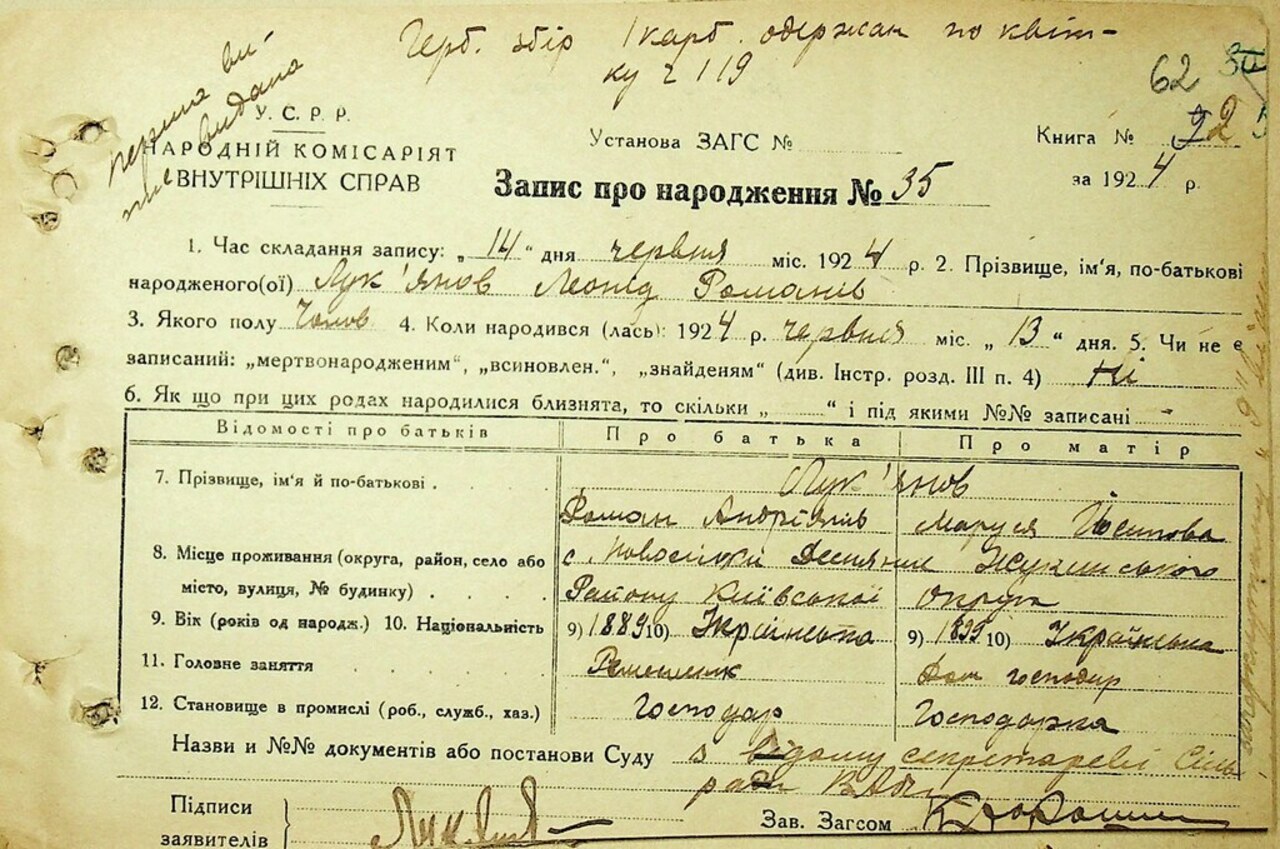 Герб. збір 1 карб. одержан по квіт-
ку ч 119
перша ви
пис видана
62
У. С. Р. Р.
НАРОДНІЙ КОМІСАРІЯТ
ВНУТРІШНІХ СПРАВ
Установа ЗАГС №
Книга № 22
за 1924 р.
Запис про народження № 35
1. Час складання запису: „14" дня червня міс. 1924 р. 2. Прізвище, ім'я, по-батькові
народженого(ої) Лук'янов Леонід Романів
3. Якого полу Чолов 4. Коли народився (лась): 1924 р. червня міс. „13" дня. 5. Чи не є
записаний: „мертвонародженим", „всиновлен.", „знайденям" (див. Інстр. розд. III п. 4) Ні
6. Як що при цих родах народилися близнята, то скільки „ " і під якими №№ записані -
Відомості про батьків Про батька Про матір
7. Прізвище, ім'я й по-батькові . Лук'янов
Роман Андріянів Маруся Йосипова
8. Місце проживання (округа, район, село або с. Новосілки Деснянні Жукинського
місто, вулиця, № будинку) . Району Київської Округи
9. Вік (років од народж.) 10. Національність 9) 1889 10) Українська 9) 1899 10) Українська
11. Головне заняття Ремешник Дом господар
12. Становище в промислі (роб., служб., хаз.) Господар Господарка
Назви и №№ документів або постанови Суду з відому секретареві Сіль
ради
Підписи
заявителів
Зав. Загсом